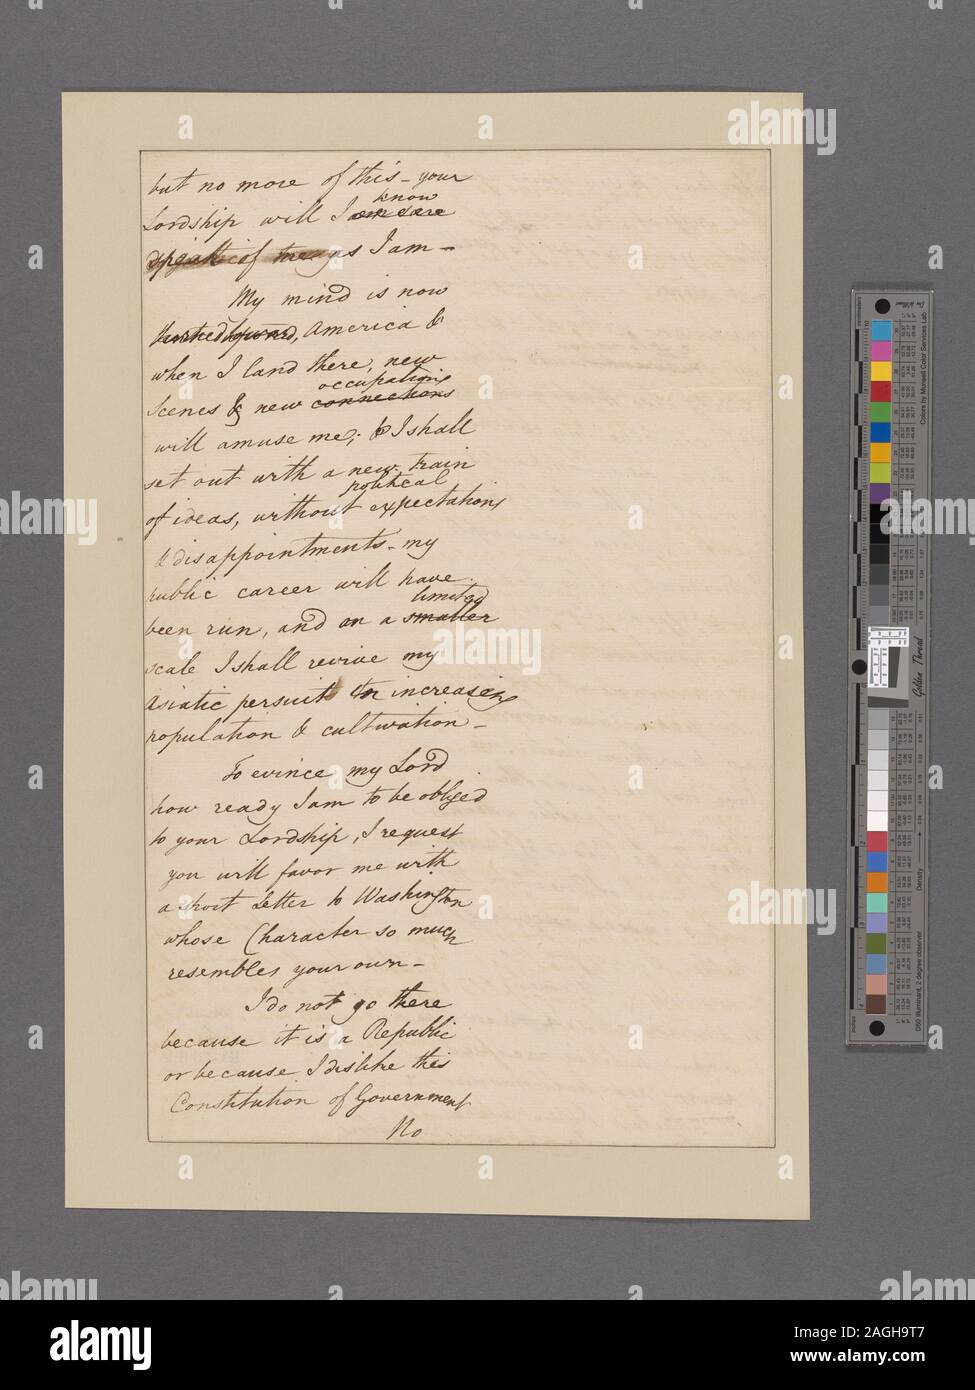 but no more of this - your
know
Lordship will I am sure
speak of me as I am -
My mind is now
turned toward, America &
when I land there, new
occupations
Scenes & new connections
will amuse me; & I shall
set out with a new train
political
of ideas, without expectations
& disappointments - my
public career will have
limited
been run, and on a smaller
scale I shall revive my
Asiatic persuits in increasing
population & cultivation -
To evince my Lord
how ready I am to be obliged
to your Lordship, I request
you will favor me with
a short Letter to Washington
whose Character so much
resembles your own -
I do not go there
because it is a Republic
or because I dislike this
Constitution of Government
No
Golden Thread
Colors by Munsell Color Services Lab
D50 Illuminant, 2 degree observer
Density
alamy
Image ID: 2AGH9T7
www.alamy.com